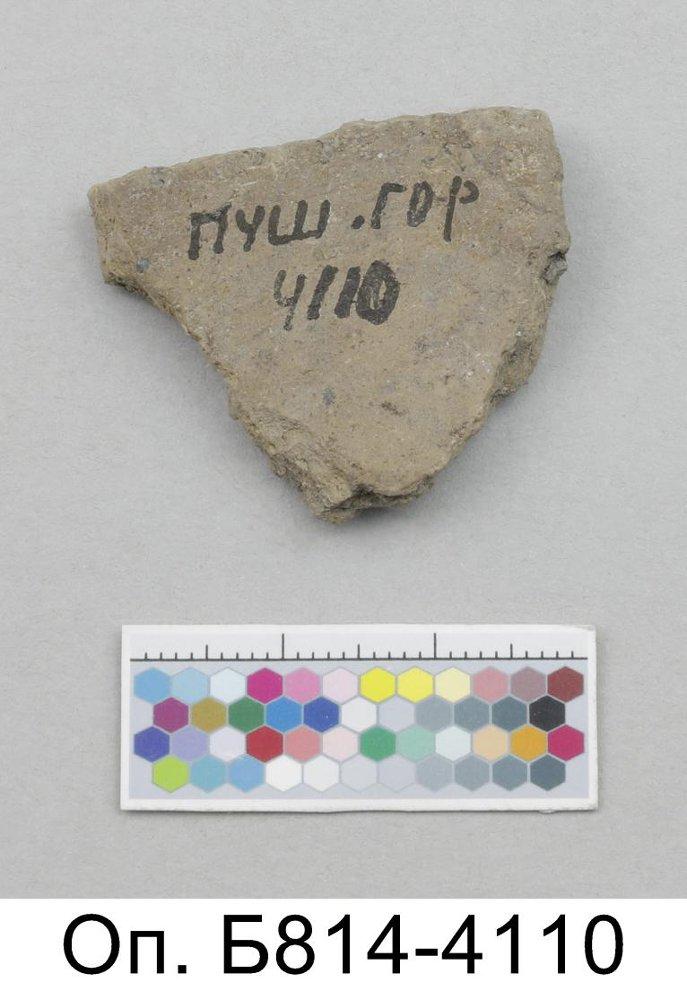 ПУШ.ГОР
4110
Оп. Б814-4110